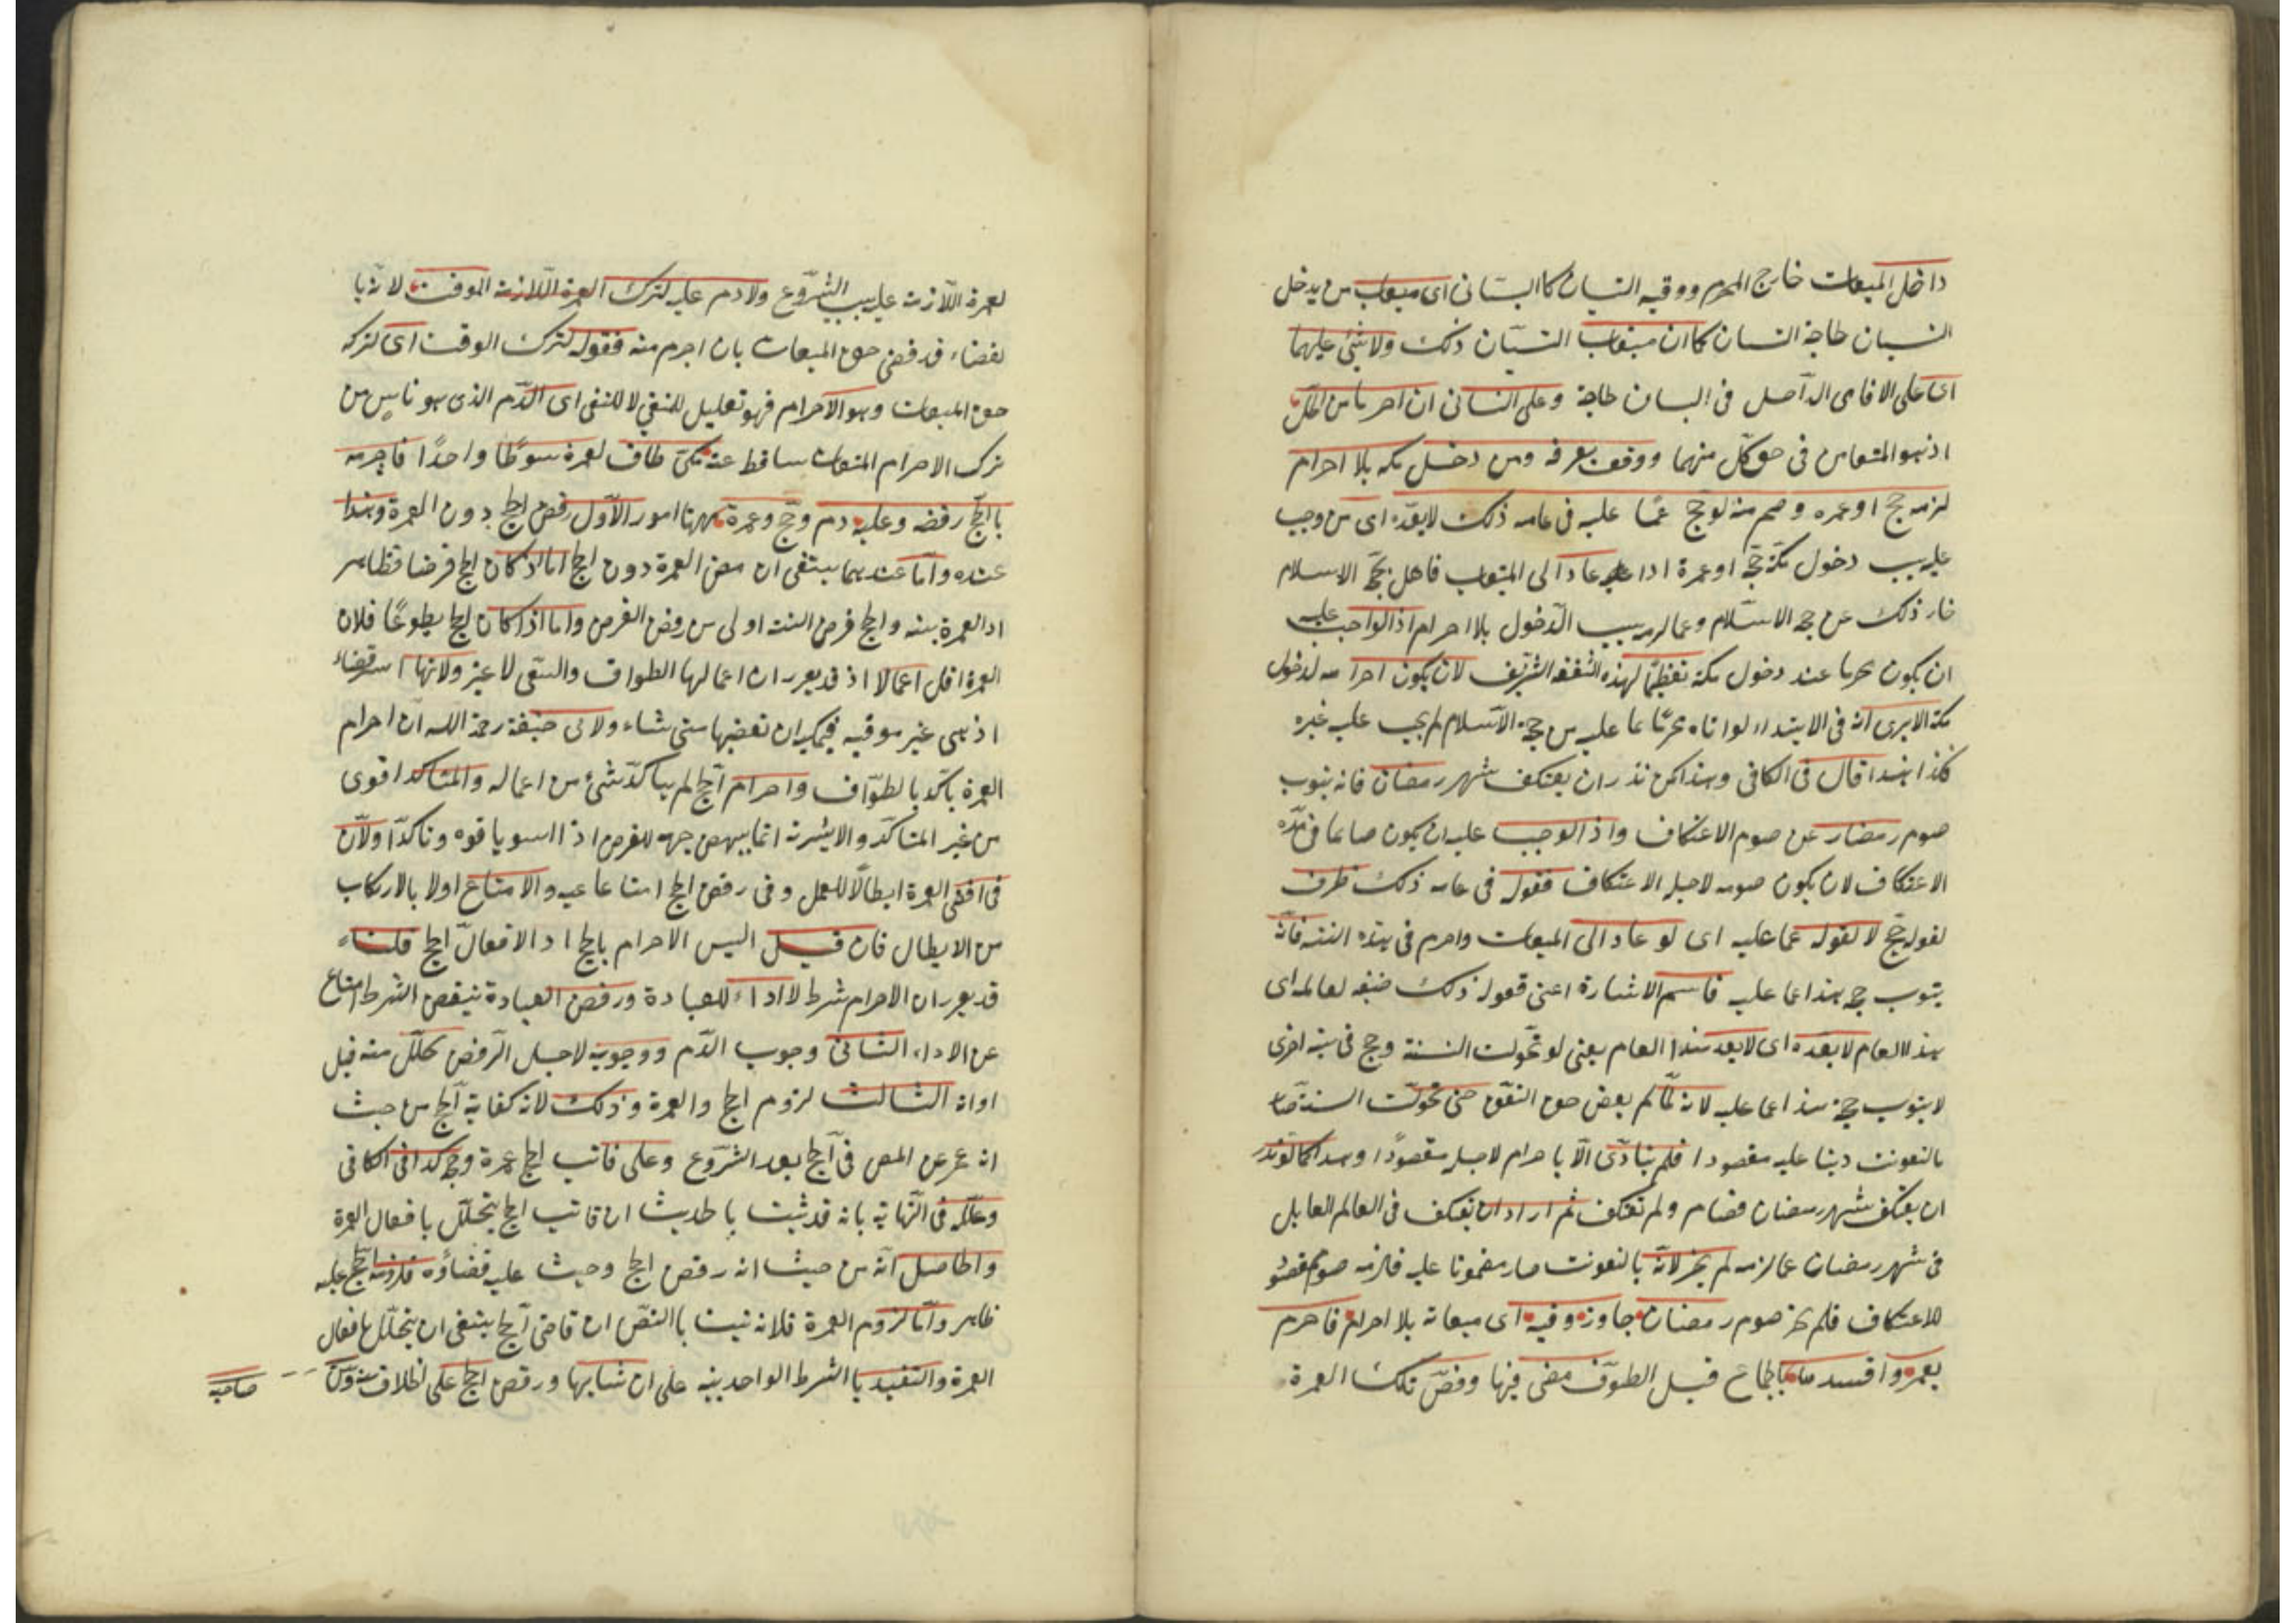 داخل الميقات خارج الحرم ووقته البستان كالبستانى اى ميقات من يدخل
البستان لحاجة البستان كما ان ميقات البستان ذلك ولا شئ عليهما
اى على الافاقى الداخل فى البستان لحاجة وعلى البستانى ان احرما من الحل
اذ هو الميقات فى حق كل منهما ووقف بعرفه ومن دخل مكه بلا احرام
لزمه حج او عمره وصح منه لو حج عما عليه فى عامه ذلك لا بعده اى من وجب
عليه بسبب دخول مكة حجة او عمرة اذا عاد الى الميقات فاهل بحجة الاسلام
جاز ذلك عن حجة الاسلام وعما لزمه بسبب الدخول بلا احرام اذ الواجب عليه
ان يكون محرما عند دخول مكة تعظيما لهذه البقعة الشريفة لا ان يكون احرامه لدخول
مكة الا يرى انه فى الابتداء لو اتاه محرما عما عليه من حجة الاسلام لم يجب عليه غيره
فكذا هذا قال فى الكافى وهذا كمن نذر ان يعتكف شهر رمضان فانه ينوب
صوم رمضان عن صوم الاعتكاف واذ الوجب عليه ان يكون صائما فى مدة
الاعتكاف لا ان يكون صومه لاجل الاعتكاف فقوله فى عامه ذلك ظرف
لقوله حج لا لقوله عما عليه اى لو عاد الى الميقات واحرم فى هذه السنة فانه
ينوب حجه هذا عما عليه فاسم الاشارة اعنى قوله ذلك صفة لعامه اى
هذا العام لا بعده اى لا بعد هذا العام يعنى لو تحولت السنة وحج فى سنة اخرى
لا ينوب حجه هذا عما عليه لانه لما لم يقض حق البقعة حتى تحولت السنة صار
بالتفويت دينا عليه مقصودا فلم يتأدى الا باحرام لاجله مقصودا وهذا كما لو نذر
ان يعتكف شهر رمضان فصام ولم يعتكف ثم اراد ان يعتكف فى العام القابل
فى شهر رمضان عما لزمه لم يجز لانه بالتفويت صار مضمونا عليه فلزمه صوم مقصود
للاعتكاف فلم يجز صوم رمضان جاوز وقته اى ميقاته بلا احرام فاحرم
بعمرة وافسدها بالجماع قبل الطواف مضى فيها وقضى تلك العمرة
لعمرة اللازمة عليه بسبب الشروع ولا دم عليه لترك العمرة اللازمة الموقت لانه با
لقضاء قد قضى حق الميقات بان احرم منه فقوله لترك الوقت اى لتركه
حق الميقات وهو الاحرام فهو تعليل للنفى لا للمنفى اى الدم الذى هو ناس من
ترك الاحرام الميقات ساقط عنه مكى طاف لعمرة شوطا واحدا فاحرمه
بالحج رفضه وعليه دم وحج وعمرة ههنا امور الاول رفض الحج دون العمرة وهذا
عنده واما عندهما ينبغى ان يرفض العمرة دون الحج اما اذا كان الحج فرضا فظاهر
اذ العمرة سنة والحج فرض السنة اولى من رفض الفرض واما اذا كان الحج تطوعا فلان
العمرة اقل اعمالا اذ قد تقرر ان اعمالها الطواف والسعى لا غير ولانها اسرع قضاء
اذ هى غير موقتة فيمكن ان يقضيها متى شاء ولابى حنيفة رحمة الله ان احرام
العمرة تأكد بالطواف واحرام الحج لم يتأكد شئ من اعماله والمتأكد اقوى
من غير المتأكد والايسرية انما ينهض جهة للفرض اذا استويا قوة وتأكدا ولان
فى رفض العمرة ابطالا للعمل وفى رفض الحج امتناعا عنه والامتناع اولا بالارتكاب
من الابطال فان قيل اليس الاحرام بالحج اداء لافعال الحج قلنا
قد تقرر ان الاحرام شرط لاداء للعبادة ورفض العبادة بنقض الشرط امتناع
عن الاداء الثانى وجوب الدم ووجوبه لاجل الرفض تحلل منه قبل
اوانه الثالث لزوم الحج والعمرة وذلك لانه كفايت الحج من حيث
انه عجز عن المضى فى الحج بعد الشروع وعلى فائت الحج عمرة وحج كذا فى الكافى
وعلله فى النهاية بانه قد ثبت بالحديث ان فائت الحج يتحلل بافعال العمرة
والحاصل انه من حيث انه رفض الحج وحيث عليه قضاؤه فلزمه الحج عليه
ظاهر واما لزوم العمرة فلانه ثبت بالنص ان قاضى الحج ينبغى ان يتحلل بافعال
العمرة والتقييد بالشرط الواحد بنية على ان شابها ورفض الحج على الخلاف بينه وبين
صاحبيه